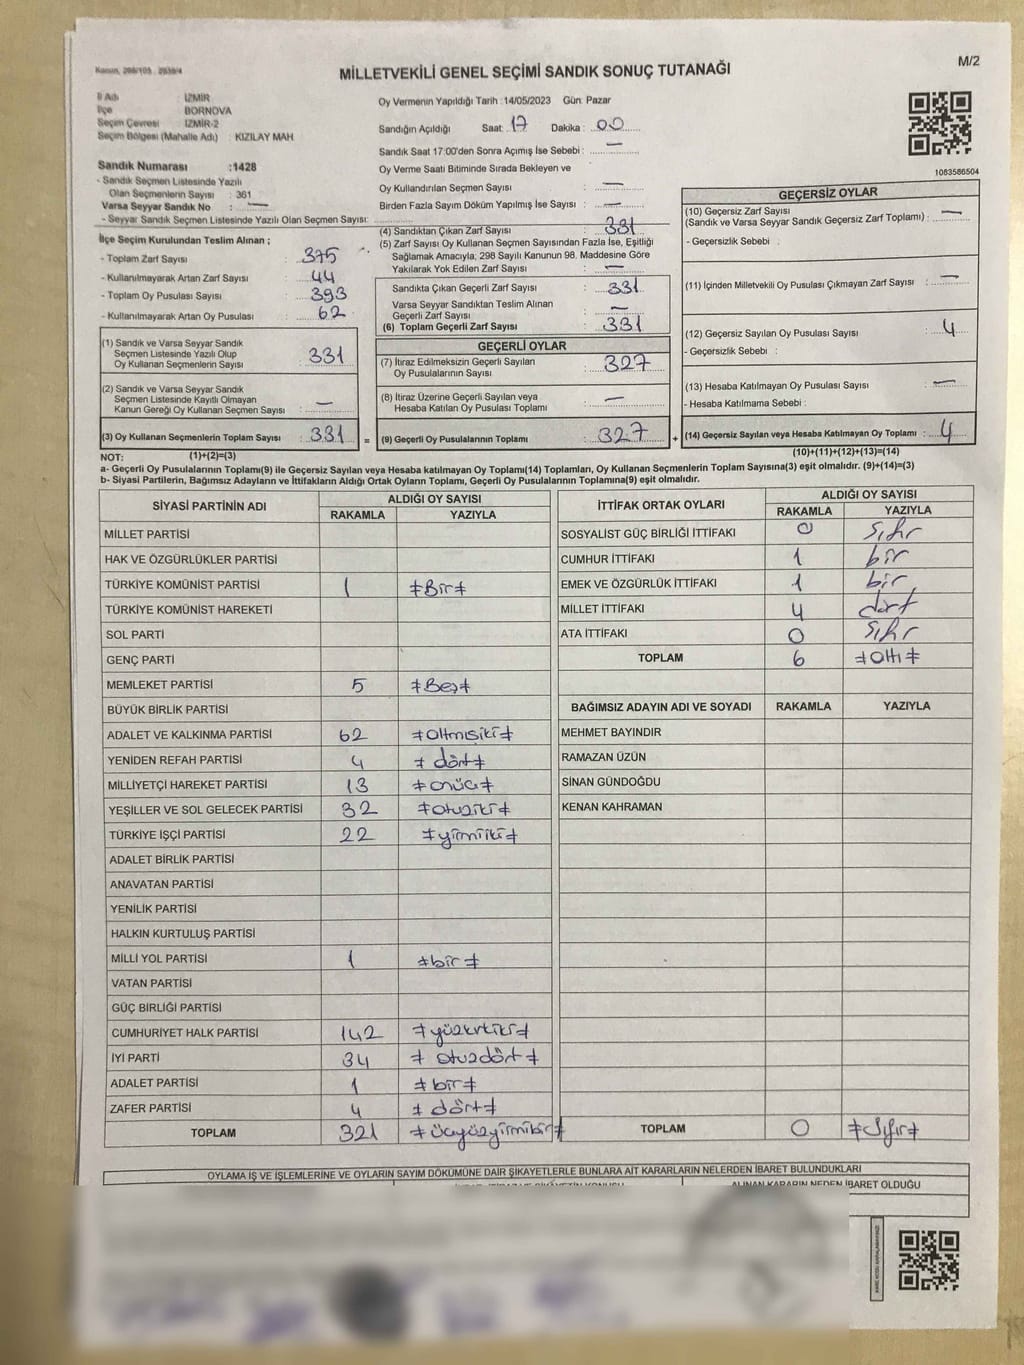 Kanun, 298/105 . 2839/4
M/2
MİLLETVEKİLİ GENEL SEÇİMİ SANDIK SONUÇ TUTANAĞI
İl Adı : İZMİR
İlçe : BORNOVA
Seçim Çevresi : İZMİR-2
Seçim Bölgesi (Mahalle Adı) : KIZILAY MAH.
Sandık Numarası :1428
- Sandık Seçmen Listesinde Yazılı
Olan Seçmenlerin Sayısı : 361
Varsa Seyyar Sandık No : —
- Seyyar Sandık Seçmen Listesinde Yazılı Olan Seçmen Sayısı:
Oy Vermenin Yapıldığı Tarih :14/05/2023 Gün: Pazar
Sandığın Açıldığı Saat: 17 Dakika : 00
Sandık Saat 17:00'den Sonra Açımış İse Sebebi : —
Oy Verme Saati Bitiminde Sırada Bekleyen ve
Oy Kullandırılan Seçmen Sayısı : —
Birden Fazla Sayım Döküm Yapılmış İse Sayısı : —
1083586504
İlçe Seçim Kurulundan Teslim Alınan ;
- Toplam Zarf Sayısı : 375
- Kullanılmayarak Artan Zarf Sayısı : 44
- Toplam Oy Pusulası Sayısı : 393
- Kullanılmayarak Artan Oy Pusulası : 62
(1) Sandık ve Varsa Seyyar Sandık
Seçmen Listesinde Yazılı Olup
Oy Kullanan Seçmenlerin Sayısı : 331
(2) Sandık ve Varsa Seyyar Sandık
Seçmen Listesinde Kayıtlı Olmayan
Kanun Gereği Oy Kullanan Seçmen Sayısı : —
(3) Oy Kullanan Seçmenlerin Toplam Sayısı : 331 =
(4) Sandıktan Çıkan Zarf Sayısı : 331
(5) Zarf Sayısı Oy Kullanan Seçmen Sayısından Fazla İse, Eşitliği
Sağlamak Amacıyla, 298 Sayılı Kanunun 98. Maddesine Göre
Yakılarak Yok Edilen Zarf Sayısı : —
Sandıkta Çıkan Geçerli Zarf Sayısı : 331
Varsa Seyyar Sandıktan Teslim Alınan
Geçerli Zarf Sayısı : —
(6) Toplam Geçerli Zarf Sayısı : 331
GEÇERLİ OYLAR
(7) İtiraz Edilmeksizin Geçerli Sayılan
Oy Pusulalarının Sayısı : 327
(8) İtiraz Üzerine Geçerli Sayılan veya
Hesaba Katılan Oy Pusulası Toplamı : —
(9) Geçerli Oy Pusulalarının Toplamı : 327 +
GEÇERSİZ OYLAR
(10) Geçersiz Zarf Sayısı
(Sandık ve Varsa Seyyar Sandık Geçersiz Zarf Toplamı) : —
- Geçersizlik Sebebi :
(11) İçinden Milletvekili Oy Pusulası Çıkmayan Zarf Sayısı : —
(12) Geçersiz Sayılan Oy Pusulası Sayısı : 4
- Geçersizlik Sebebi :
(13) Hesaba Katılmayan Oy Pusulası Sayısı : —
- Hesaba Katılmama Sebebi :
(14) Geçersiz Sayılan veya Hesaba Katılmayan Oy Toplamı : 4
NOT: (1)+(2)=(3) (10)+(11)+(12)+(13)=(14)
a- Geçerli Oy Pusulalarının Toplamı(9) ile Geçersiz Sayılan veya Hesaba katılmayan Oy Toplamı(14) Toplamları, Oy Kullanan Seçmenlerin Toplam Sayısına(3) eşit olmalıdır. (9)+(14)=(3)
b- Siyasi Partilerin, Bağımsız Adayların ve İttifakların Aldığı Ortak Oyların Toplamı, Geçerli Oy Pusulalarının Toplamına(9) eşit olmalıdır.
SİYASİ PARTİNİN ADI ALDIĞI OY SAYISI
RAKAMLA YAZIYLA
MİLLET PARTİSİ
HAK VE ÖZGÜRLÜKLER PARTİSİ
TÜRKİYE KOMÜNİST PARTİSİ 1 ≠Bir≠
TÜRKİYE KOMÜNİST HAREKETİ
SOL PARTİ
GENÇ PARTİ
MEMLEKET PARTİSİ 5 ≠Beş≠
BÜYÜK BİRLİK PARTİSİ
ADALET VE KALKINMA PARTİSİ 62 ≠altmışiki≠
YENİDEN REFAH PARTİSİ 4 ≠dört≠
MİLLİYETÇİ HAREKET PARTİSİ 13 ≠onüç≠
YEŞİLLER VE SOL GELECEK PARTİSİ 32 ≠otuziki≠
TÜRKİYE İŞÇİ PARTİSİ 22 ≠yirmiiki≠
ADALET BİRLİK PARTİSİ
ANAVATAN PARTİSİ
YENİLİK PARTİSİ
HALKIN KURTULUŞ PARTİSİ
MİLLİ YOL PARTİSİ 1 ≠bir≠
VATAN PARTİSİ
GÜÇ BİRLİĞİ PARTİSİ
CUMHURİYET HALK PARTİSİ 142 ≠yüzkırkiki≠
İYİ PARTİ 34 ≠otuzdört≠
ADALET PARTİSİ 1 ≠bir≠
ZAFER PARTİSİ 4 ≠dört≠
TOPLAM 321 ≠üçyüzyirmibir≠
İTTİFAK ORTAK OYLARI ALDIĞI OY SAYISI
RAKAMLA YAZIYLA
SOSYALİST GÜÇ BİRLİĞİ İTTİFAKI 0 sıfır
CUMHUR İTTİFAKI 1 bir
EMEK VE ÖZGÜRLÜK İTTİFAKI 1 bir
MİLLET İTTİFAKI 4 dört
ATA İTTİFAKI 0 sıfır
TOPLAM 6 ≠altı≠
BAĞIMSIZ ADAYIN ADI VE SOYADI RAKAMLA YAZIYLA
MEHMET BAYINDIR
RAMAZAN ÜZÜN
SİNAN GÜNDOĞDU
KENAN KAHRAMAN
TOPLAM 0 ≠Sıfır≠
OYLAMA İŞ VE İŞLEMLERİNE VE OYLARIN SAYIM DÖKÜMÜNE DAİR ŞİKAYETLERLE BUNLARA AİT KARARLARIN NELERDEN İBARET BULUNDUKLARI
ALINAN KARARIN NEDEN İBARET OLDUĞU